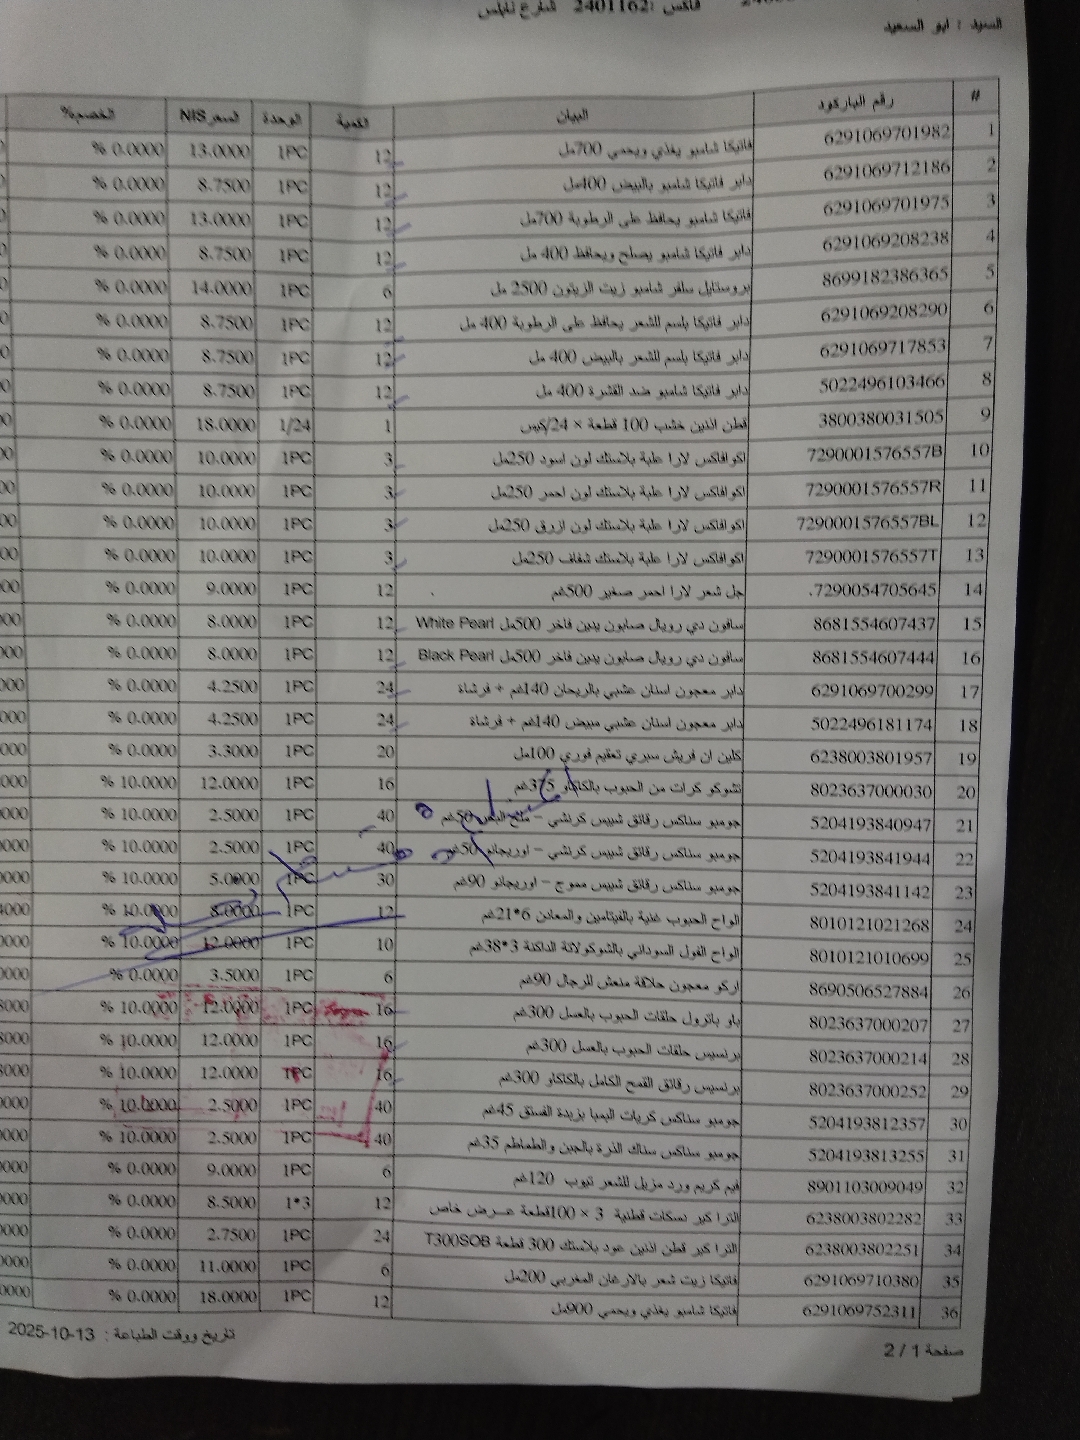 فاكس :2401162 شارع نابلس
السيد : ابو السعيد
# رقم الباركود البيان الكمية الوحدة السعرNIS الخصم%
1 6291069701982 فاتيكا شامبو يغذي ويحمي 700مل 12 1PC 13.0000 0.0000 %
2 6291069712186 دابر فاتيكا شامبو بالبيض 400مل 12 1PC 8.7500 0.0000 %
3 6291069701975 فاتيكا شامبو يحافظ على الرطوبة 700مل 12 1PC 13.0000 0.0000 %
4 6291069208238 دابر فاتيكا شامبو يصلح ويحافظ 400 مل 12 1PC 8.7500 0.0000 %
5 8699182386365 بروستايل سلفر شامبو زيت الزيتون 2500 مل 6 1PC 14.0000 0.0000 %
6 6291069208290 دابر فاتيكا بلسم للشعر يحافظ على الرطوبة 400 مل 12 1PC 8.7500 0.0000 %
7 6291069717853 دابر فاتيكا بلسم للشعر بالبيض 400 مل 12 1PC 8.7500 0.0000 %
8 5022496103466 دابر فاتيكا شامبو ضد القشرة 400 مل 12 1PC 8.7500 0.0000 %
9 3800380031505 قطن اذنين خشب 100 قطعة × 24/كيس 1 1/24 18.0000 0.0000 %
10 7290001576557B اكوافاكس لارا علبة بلاستك لون اسود 250مل 3 1PC 10.0000 0.0000 %
11 7290001576557R اكوافاكس لارا علبة بلاستك لون احمر 250مل 3 1PC 10.0000 0.0000 %
12 7290001576557BL اكوافاكس لارا علبة بلاستك لون ازرق 250مل 3 1PC 10.0000 0.0000 %
13 7290001576557T اكوافاكس لارا علبة بلاستك شفاف 250مل 3 1PC 10.0000 0.0000 %
14 7290054705645. جل شعر لارا احمر صغير 500غم 12 1PC 9.0000 0.0000 %
15 8681554607437 سافون دي رويال صابون يدين فاخر 500مل White Pearl 12 1PC 8.0000 0.0000 %
16 8681554607444 سافون دي رويال صابون يدين فاخر 500مل Black Pearl 12 1PC 8.0000 0.0000 %
17 6291069700299 دابر معجون اسنان عشبي بالريحان 140غم + فرشاة 24 1PC 4.2500 0.0000 %
18 5022496181174 دابر معجون اسنان عشبي مبيض 140غم + فرشاة 24 1PC 4.2500 0.0000 %
19 6238003801957 كلين ان فريش سبري تعقيم فوري 100مل 20 1PC 3.3000 0.0000 %
20 8023637000030 تشوكو كرات من الحبوب بالكاكاو 375غم 16 1PC 12.0000 10.0000 %
21 5204193840947 جومبو سناكس رقائق شيبس كرنشي - ملح البحر 50غم 40 1PC 2.5000 10.0000 %
22 5204193841944 جومبو سناكس رقائق شيبس كرنشي - اوريجانو 50غم 40 1PC 2.5000 10.0000 %
23 5204193841142 جومبو سناكس رقائق شيبس مموج - اوريجانو 90غم 30 1PC 5.0000 10.0000 %
24 8010121021268 الواح الحبوب غنية بالفيتامين والمعادن 6*21غم 12 1PC 8.0000 10.0000 %
25 8010121010699 الواح الفول السوداني بالشوكولاتة الداكنة 3*38غم 10 1PC 12.0000 10.0000 %
26 8690506527884 اركو معجون حلاقة منعش للرجال 90غم 6 1PC 3.5000 0.0000 %
27 8023637000207 باو باترول حلقات الحبوب بالعسل 300غم 16 1PC 12.0000 10.0000 %
28 8023637000214 برنسيس حلقات الحبوب بالعسل 300غم 16 1PC 12.0000 10.0000 %
29 8023637000252 برنسيس رقائق القمح الكامل بالكاكاو 300غم 16 1PC 12.0000 10.0000 %
30 5204193812357 جومبو سناكس كريات البمبا بزبدة الفستق 45غم 40 1PC 2.5000 10.0000 %
31 5204193813255 جومبو سناكس سناك الذرة بالجبن والطماطم 35غم 40 1PC 2.5000 10.0000 %
32 8901103009049 فيم كريم ورد مزيل للشعر تيوب 120غم 6 1PC 9.0000 0.0000 %
33 6238003802282 الترا كير نسكات قطنية 3 × 100قطعة عرض خاص 12 1*3 8.5000 0.0000 %
34 6238003802251 الترا كير قطن اذنين عود بلاستك 300 قطعة T300SOB 24 1PC 2.7500 0.0000 %
35 6291069710380 فاتيكا زيت شعر بالارغان المغربي 200مل 6 1PC 11.0000 0.0000 %
36 6291069752311 فاتيكا شامبو يغذي ويحمي 900مل 12 1PC 18.0000 0.0000 %
صفحة 1 / 2
تاريخ ووقت الطباعة : 13-10-2025